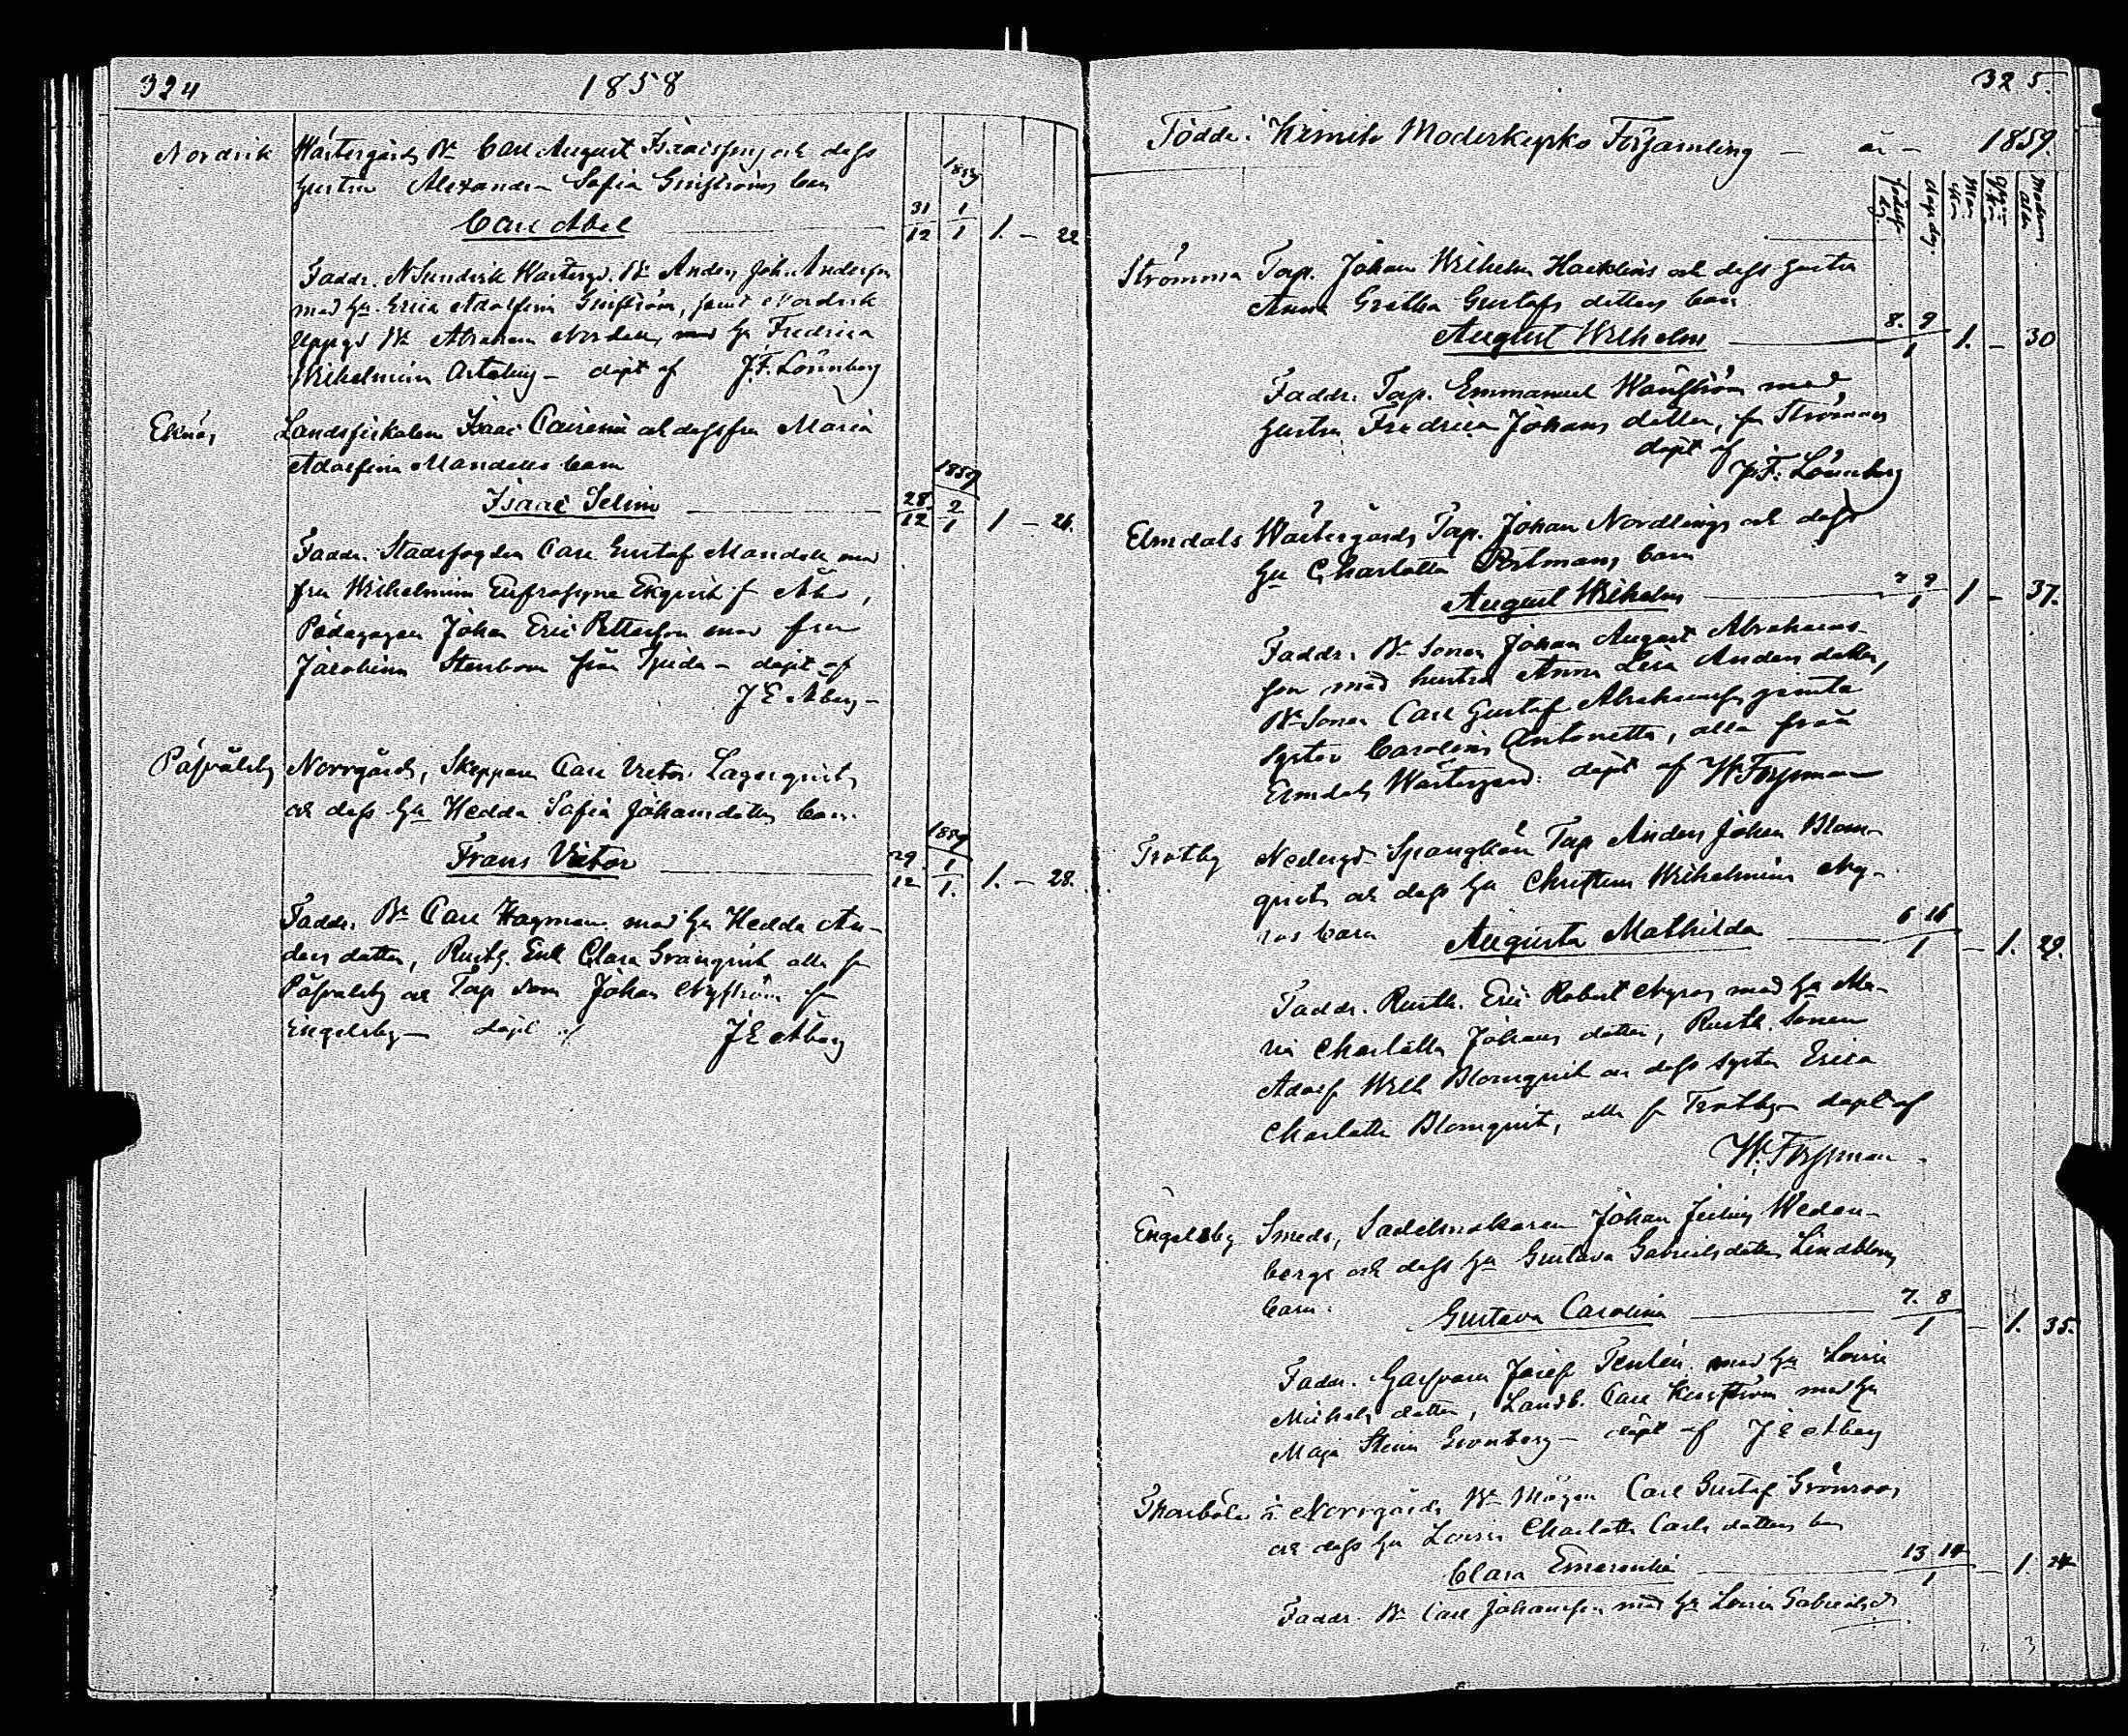 324 1858
Nordvik Wästergårds Bn Carl August Isacssons och dess
hustru Alexandra Sofia barn
1859
Carl Abel 31/12 1/1 1. – 22
Faddr. N Sundvik Wästergd. Bn Anders Joh. Anderson
med Hu Erica Adolfina samt Nordvik
Uppgd Bn Abraham Nordell, med Hu Fredrica
Wilhelmina – döpt af J.F. Lönnberg
Eknäs Landsfiskalen Isaac och dess fru Maria
Adolfina Mandells barn
1859
Isaac Selim 28/12 2/1 1 – 26.
Faddr. Stadsfogden Carl Gustaf Mandell med
fru Wilhelmina Eufrosyne Ekqvist f Åbo,
Pedagogen Johan Eric Petterson med fru
Jacobina Stenbom från Tjuda – döpt af
J E Åberg –
Påfvalsby Norrgårds, Skepparen Carl Victor Lagerqvists
och dess Hu Hedda Sofia Johansdotters barn.
1859
Frans Victor 29/12 1/1. 1. – 28.
Faddr. Bn Carl Hagman med Hu Hedda An-
ders dotter, Rusth. Enk Clara Granqvist alla fr
Påfvalsby och Torp Son Johan Nyström fr
Engelsby – döpt af J E Åberg
325.
Födde i Kimito Moderkyrko Församling – år – 1859.
Födelse dag Dop dag Man kön Qvin kön Modrens ålder
Strömma Torp. Johan Wilhelm och dess hustru
Anna Gretha Gustafs dotters barn
August Wilhelm 8. 9/1 1. – 30
Faddr. Torp. Emmanuel med
hustru Fredrica Johans dotter, fr Strömma
döpt af
J.F. Lönnberg
Elmdals Wästergårds Torp. Johan Nordlings och dess
Hu Charlotta barn
August Wilhelm 7 9/1 1 – 37.
Faddr. Bn Sonen Johan August Abrahams-
son med hustru Anna Lisa Anders dotter,
Bn Sonen Carl Gustaf Abrahamss. jemte
syster Carolina Antonetta, alla från
Elmdals Wästergård. döpt af W. Forssman
Trotby Nedergd Torp Anders Johan Blom-
qvists och dess Hu Christina Wilhelmina Ny-
ros barn Augusta Mathilda 6 16/1 – 1. 29.
Faddr. Rusth. Eric Robert Nyros med Hu Ma-
ria Charlotta Johans dotter, Rusth. Sonen
Adolf Wilh Blomqvist och dess syster Erica
Charlotta Blomqvist, alla fr Trotby – döpt af
W. Forssman
Engelsby Smeds, Sadelmakaren Johan Julius Weden-
bergs och dess Hu Gustava Gabrielsdotter Lindbloms
barn. Gustava Carolina 7. 8/1 – 1. 35.
Faddr. Garfvaren Josef med Hu Lovisa
Michels dotter, Landb. Carl med Hu
Maja Stina Grönberg – döpt af J E Åberg
Norrgårds Bn Mågen Carl Gustaf Grönroos
och dess Hu Lovisa Charlotta Carls dotters barn
Clara Emerentia 13 14/1 – 1. 24
Faddr. Bn Carl Johansson med Hu Lovisa Gabrielsd